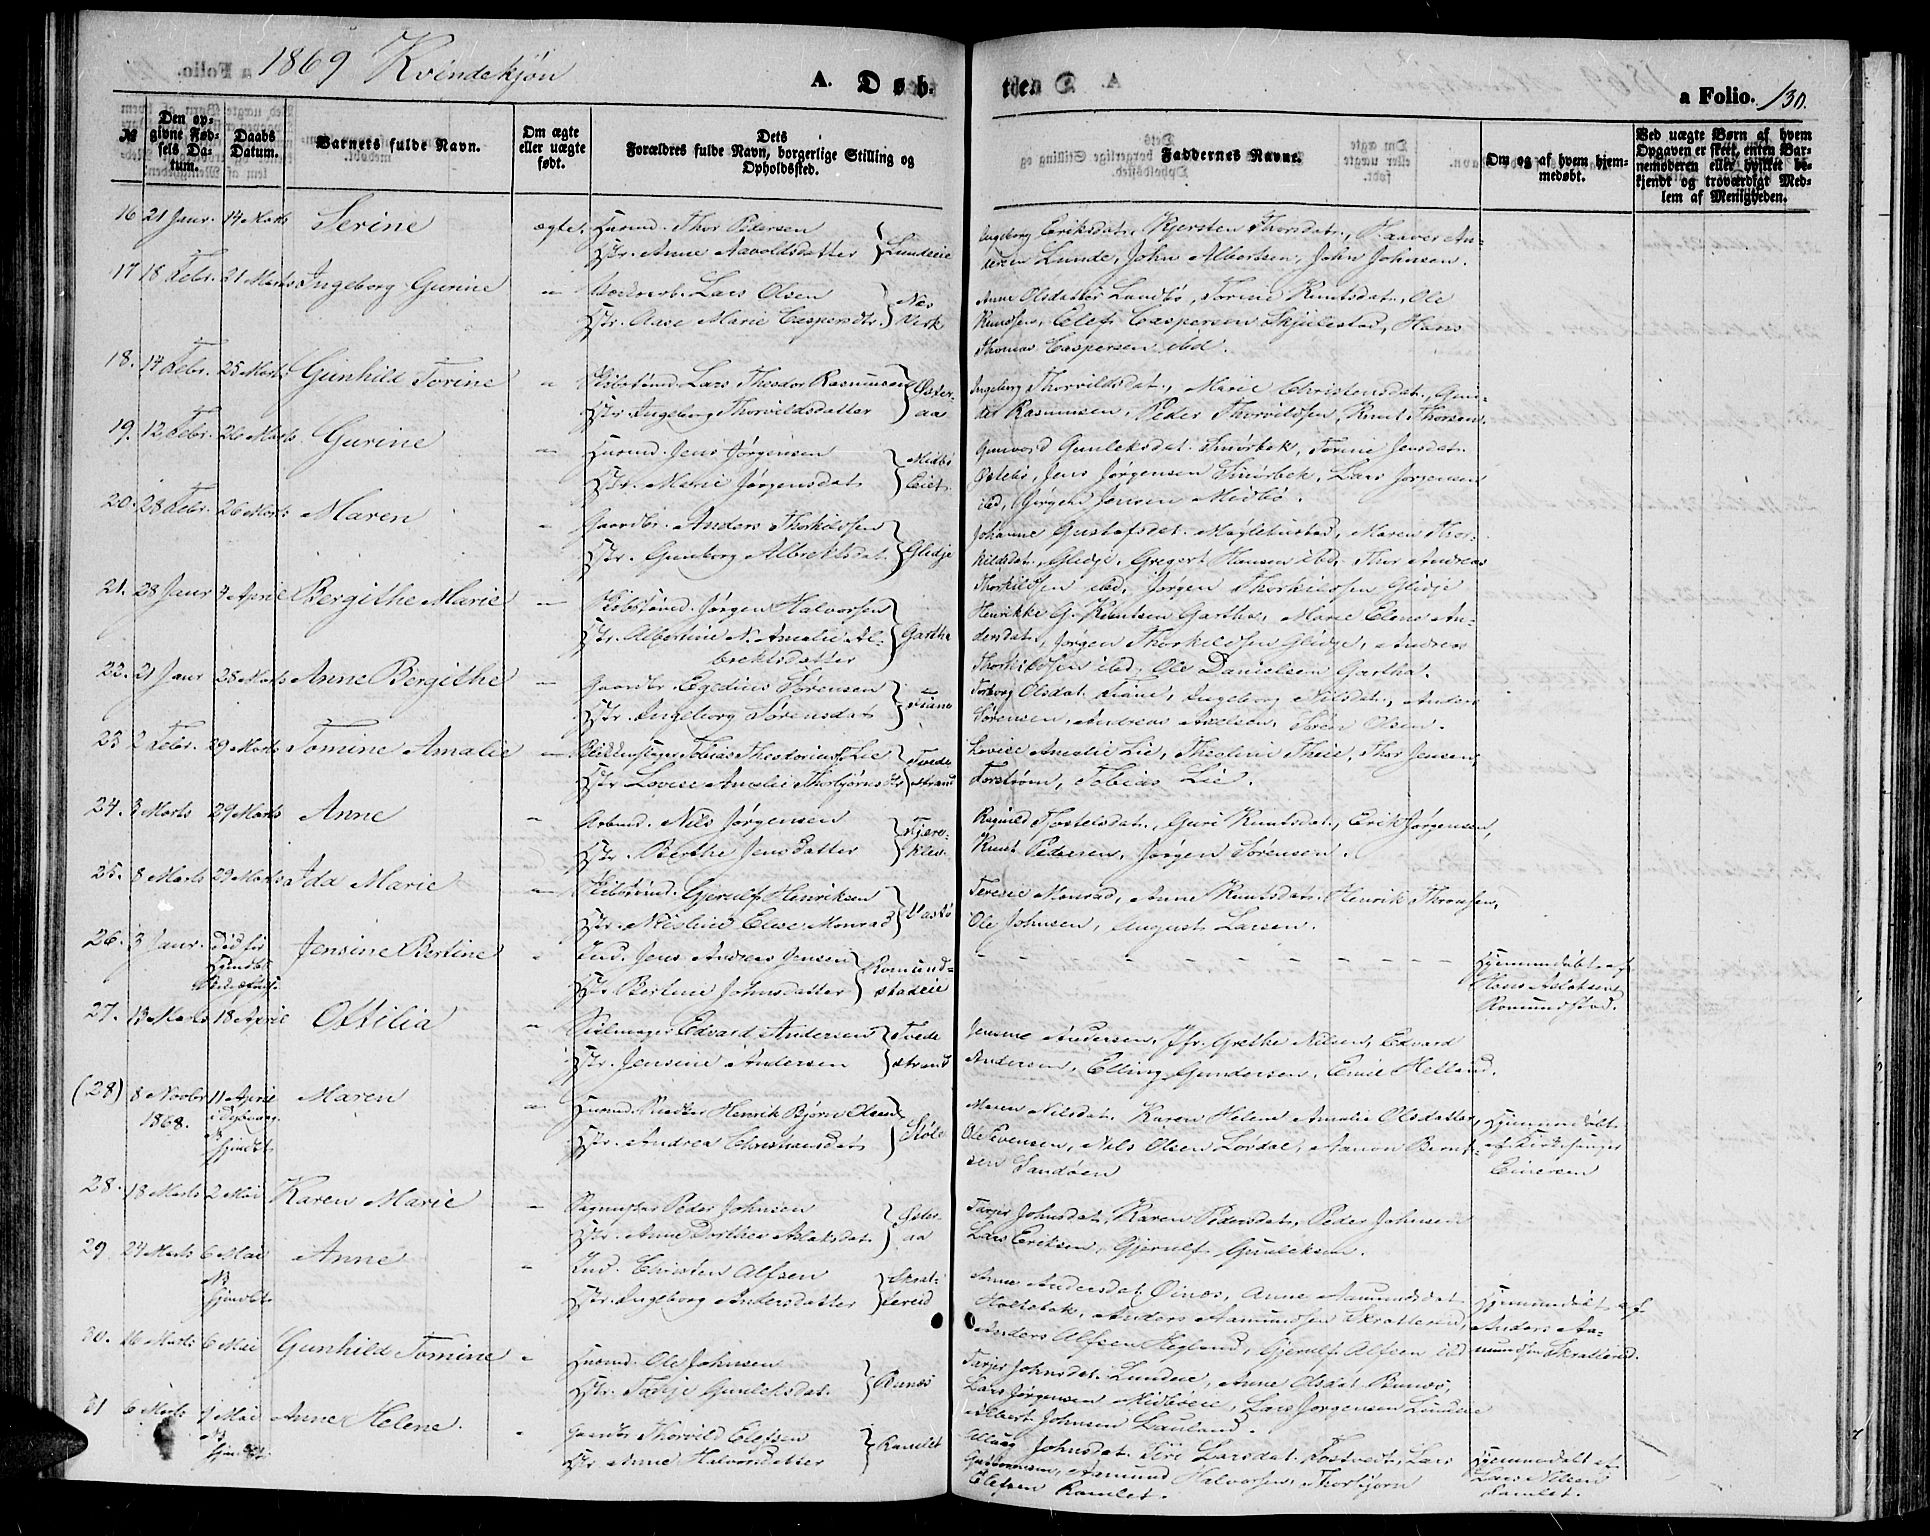 1869 Kvindekjøn
A. Døb-
tden
a Folio. 130.
№
Den op-
givne Fød-
sels Da-
tum.
Daabs
Datum.
Barnets fulde Navn.
Om ægte
eller uægte
født.
Dets
Forældres fulde Navn, borgerlige Stilling og
Opholdssted.
Faddernes Navne.
Om og af hvem hjem-
medøbt.
Ved uægte Børn af hvem
Opgaven er skeet, enten Bar-
nemoderen eller hvilket be-
kjendt og troværdigt Med-
lem af Menigheden.
16 21 Janr. 14 Marts Serine ægte. Husmd. Thor Pedersen
Hstr. Anne Aavoldsdatter } Lundeeie
Ingeborg Eriksdat., Kjersten Thorsdat., Haaver An-
dersen Lunde, John Albertsen, John Johnsen.
17 18 Febr. 21 Marts Ingeborg Gurine " Lars Olsen
Hstr. Aase Marie Caspersdtr. } Næs Verk
Anne Olsdatter Lundbø, Torine Knutsdat., Ole
Knutsen, Elef Caspersen Skjulestad, Hans
Thomas Caspersen ibd.
18. 14 Febr. 25 Marts Gunhild Torine " Lars Theodor Rasmussen
Hstr. Ingeborg Thorvildsdatter } Øster-
aa
Ingeborg Thorvildsdat., Marie Christensdat., Gun-
der Rasmussen, Peder Thorvildsen, Knut Thorsen.
19. 12 Febr. 26 Marts Gurine " Husmd. Jens Jørgensen
Hstr. Marie Jørgensdat. } Midbø
Eiet.
Gunvord Gunleksdat. Smørbek, Torine Jensdat.
Jens Jørgensen Smørbek, Lars Jørgensen
ibd, Jørgen Jensen Midbø.
20. 28 Febr. 26 Marts Maren " Gaardbr. Anders Thorkildsen
Hstr. Gunborg Albrektsdat. } Glidje
Johanne Gustafsdat. Maren Thor-
kildsdat. Glidje, Gregert Hansen ibd, Thor Andreas
Thorkildsen ibd, Jørgen Thorkildsen Glidje
21. 28 Janr 4 April Bergithe Marie " Jørgen Halvorsen
Hstr. Albertine N. Amalie Al-
brektsdatter } Gartha
Henrikke G. Knutsen Gartha, Marie Elene An-
dersdat., Jørgen Thorkildsen Glidje, Andreas
Thorkildsen ibd, Ole Danielsen Gartha.
22. 21 Janr 28 Marts Anne Bergithe " Gaardbr. Egedius Sørensen
Hstr. Ingeborg Sørensdat. } Fiane
Torborg Olsdat. Fiane, Ingeborg Nilsdat., Anders
Sørensen, Andreas Axelsen, Søren Olsen.
23 2 Febr. 29 Marts Tomine Amalie " Tobias Theodorius Lie
Hstr. Lovise Amalie Thorbjørnsdtr } Tvede-
strand
Lovise Amalie Lie, Theoline Theie, Thor Jensen
Torstrøm, Tobias Lie.
24. 3 Marts 29 Marts Anne " Arbmd. Nils Jørgensen
Hstr. Berthe Jensdatter } Fjære-
klev
Ragnild Torkelsdat., Guri Knutsdat., Erik Jørgensen,
Knut Pedersen, Jørgen Sørensen.
25. 8 Marts 29 Marts Ida Marie " Gjerulf Henriksen
Hstr. Else Monrad } Vastø
Terese Monrad, Anne Knutsdat. Henrik Thronsen,
Ole Johnsen, August Larsen.
26. 3 Janr. død før
Jensine Bertine " Ind. Jens Andreas Jensen
Hstr. Bertine Johnsdatter } Romund-
stadeie
Hjemmedøbt af
Hans Aslaksen
Romundstad.
27. 13 Marts 18 April Ottilia " Seilmager Edvard Andersen
Hstr. Jensine Andersen } Tvede
strand
Jensine Andersen, Jfr. Grethe Nilsen, Edvard
Andersen, Elling Gundersen, Emil Helland.
(28) 8 Novbr
1868. 11 April
i Dybvaag
NB
Hjmdbt. Maren " Husmd. Henrik Bjørn Olsen
Hstr. Andrea Christiansdat. } Støle
Maren Nilsdat. Karen Helene Amalie Olsdatter,
Ole Evensen, Nils Olsen Lordal, Aanon Bernt-
sen Sandøen
Hjemmedøbt
af Kirkesanger
Einersen
28. 18 Marts 2 Mai Karen Marie " Peder Johnsen
Hstr. Anne Dorthea Aslaksdat. } Øster-
aa
Tarjer Johnsdat., Karen Pedersdat., Peder Johnsen
Lars Eriksen, Gjerulf Gunleksen.
29. 24 Marts 6 Mai
NB
Hjmdbt. Anne " Ind. Christen Alfsen
Hstr. Ingeborg Andersdatter } Skrat-
tereid
Anne Andersdat. Øinæs, Anne Aamundsdat.
Holtebek, Anders Aamundsen Skrattereid,
Anders Alfsen Hegland, Gjerulf Alfsen ibd
Hjemmedøbt af
Anders Aa-
mundsen Skrattereid.
30. 16 Marts 6 Mai Gunhild Tomine " Husmd. Ole Johnsen
Hstr. Tarje Gunleksdat. } Bunæs
Tarjer Johnsdat. Lundeie, Anne Olsdat. Bunæs,
Lars Jørgensen Midbøeie, Lars Jørgensen Lundeie
Albert Johnsen Lauland.
31 6 Marts 7 Mai
NB
Hjmdbt. Anne Helene. " Gaardbr Thorvild Elefsen
Hstr Anne Halvorsdatter } Ramlet
Johnsdat. Siri Larsdat. Tostvedt, Lars
Aamund Halvorsen, Thorbjørn
Elefsen Ramlet.
Hjemmedøbt af
Lars Nilsen
Ramlet.